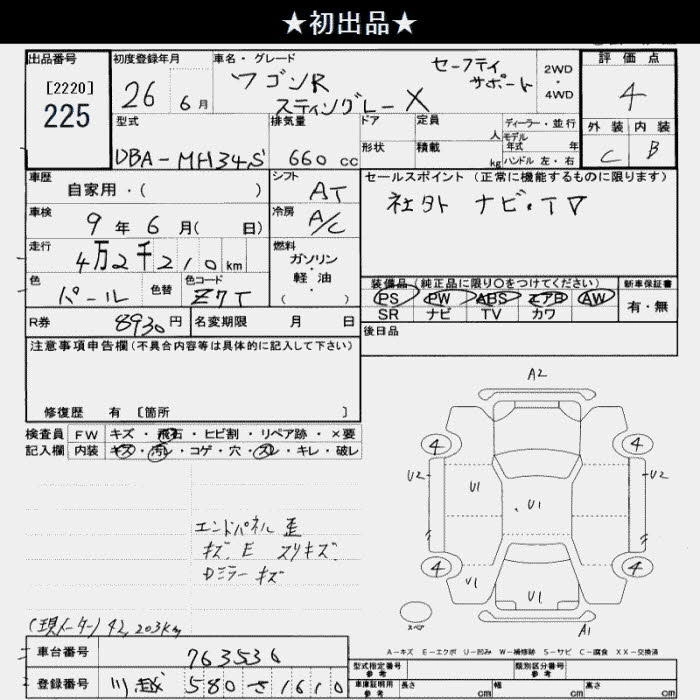 ★初出品★
出品番号
[2220]
225
初度登録年月
26 6月
車名・グレード
ワゴンR
スティングレーX
セーフティ
サポート
2WD
4WD
評価点
4
外装 内装
C B
型式
DBA-MH34S
排気量
660 cc
ドア
形状
定員
人
積載
kg
ディーラー・並行
モデル
年式 年
ハンドル 左・右
車歴
自家用・( )
シフト
AT
セールスポイント (正常に機能するものに限ります)
社外 ナビ・TV
車検
9年6月( 日)
冷房
A/C
走行
4万2千210km
燃料
ガソリン
・
軽油
・
( )
色
パール
色替
色コード
Z7T
装備品 (純正品に限り○をつけてください)
PS PW ABS エアB AW
SR ナビ TV カワ
新車保証書
有・無
R券
8930円
名変期限 月 日
後日品
注意事項申告欄 (不具合内容等は具体的に記入して下さい)
修復歴 有 [箇所 ]
検査員 FW キズ・飛石・ヒビ割・リペア跡・×要
記入欄 内装 キズ・汚レ・コゲ・穴・スレ・キレ・破レ
A2
4 4
U2 U2
U1
U1
4 4
U1
U1
A1
スペア
エンドパネル 歪
キズ、E スリキズ
Dミラーキズ
(現メーター) 42,203km
A-キズ E-エクボ U-凹み W-補修跡 S-サビ C-腐食 XX-交換済
車台番号
763536
登録番号
川越 580 さ 1610
型式指定番号
参考
類別区分番号
参考
車庫証明用
参考
長さ cm
幅 cm
高さ cm